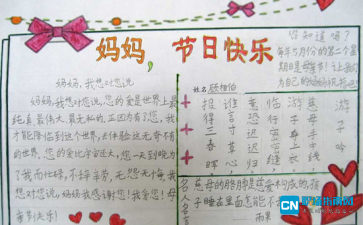 妈妈,节日快乐
你知道吗?
每年5月份的第二个星
期日是母亲节!让我们
为自己的妈妈
妈妈,我想对您说
妈妈,我想对您说,您的爱是世界上最
纯真、最伟大、最无私的,正因为有了您,我
才能降临到这个世界,去体验这无奇不有
的世界。您的爱比宇宙还大,您一天到晚为
了我而忙碌,不辞辛劳,无怨无悔,我
想对您说,妈妈我感谢您!我爱您!母
亲节快乐!
姓名
游子吟
慈母手中线
游子身上衣
临行密密缝
意恐迟迟归
谁言寸草心
报得三春晖
名人名言
慈母的胳膊是慈爱构成的,孩
子睡在里面怎能不
雨果